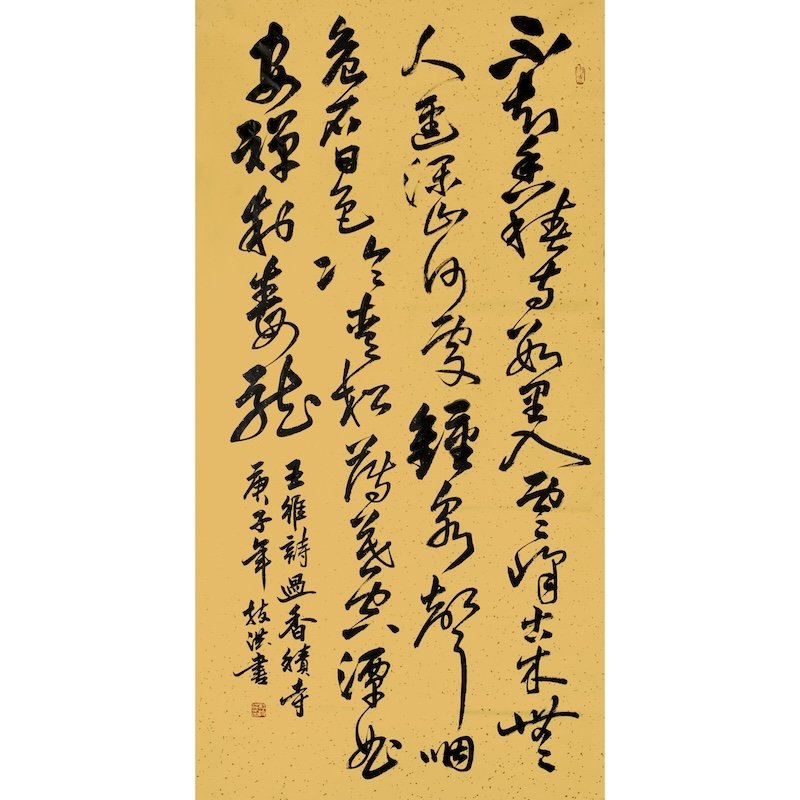 不知香積寺數里入雲峰古木無
人逕深山何處鐘泉聲咽
危石日色冷青松薄暮空潭曲
安禪制毒龍
王維詩過香積寺
庚子年 技洪書